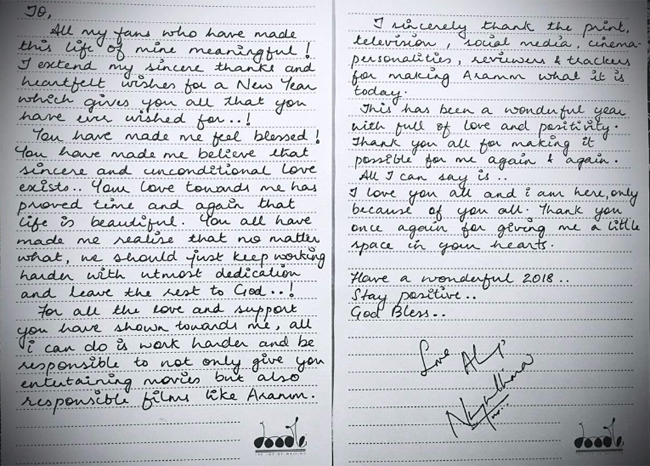 To,
All my fans who have made
this life of mine meaningful!
I extend my sincere thanks and
heartfelt wishes for a New Year
which gives you all that you
have ever wished for..!
You have made me feel blessed!
You have made me believe that
sincere and unconditional love
exists.. Your love towards me has
proved time and again that
life is beautiful. You all have
made me realise that no matter
what, we should just keep working
harder with utmost dedication
and leave the rest to God..!
For all the love and support
you have shown towards me, all
i can do is work harder and be
responsible to not only give you
entertaining movies but also
responsible films like Aramm.
doodle
I sincerely thank the print,
television, social media, cinema-
personalities, reviewers & trackers
for making Aramm what it is
today.
This has been a wonderful year
with full of love and positivity.
Thank you all for making it
possible for me again & again.
All I can say is..
I love you all and i am here, only
because of you all. Thank you
once again for giving me a little
space in your hearts.
Have a wonderful 2018..
Stay positive..
God Bless..
Love
doodle